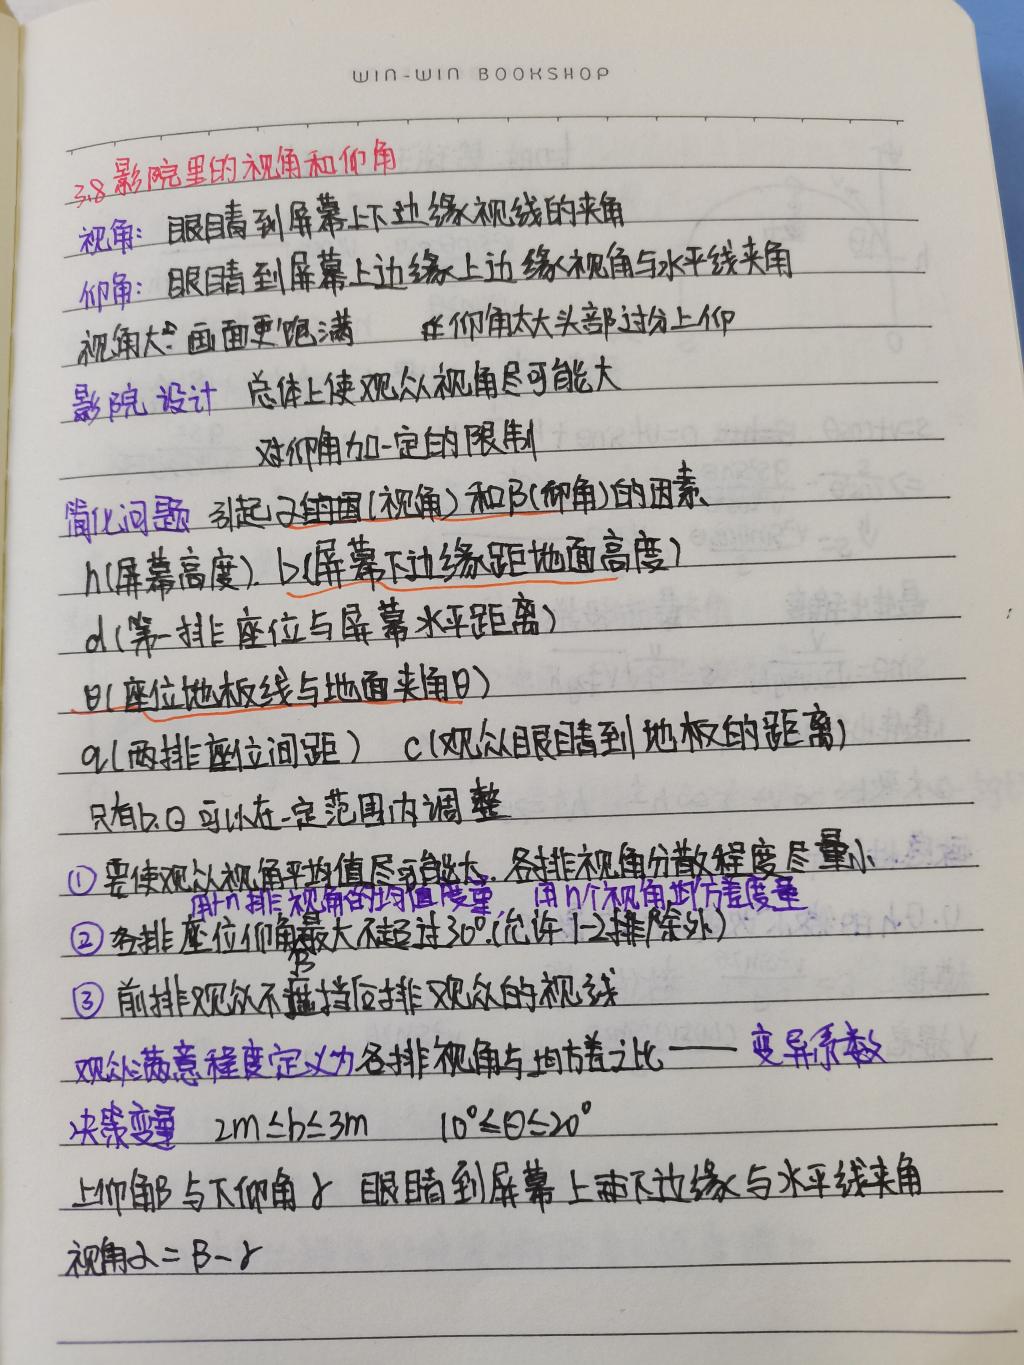 WIN-WIN BOOKSHOP
3.8 影院里的视角和仰角
视角: 眼睛到屏幕上下边缘视线的夹角
仰角: 眼睛到屏幕上边缘上边缘视角与水平线夹角
视角大: 画面更饱满 仰角太大头部过分上仰
影院设计 总体上使观众视角尽可能大
对仰角加一定的限制
简化问题 引起α(视角)和β(仰角)的因素
h(屏幕高度). b(屏幕下边缘距地面高度)
d(第一排座位与屏幕水平距离)
θ(座位地板线与地面夹角θ)
q(两排座位间距) c(观众眼睛到地板的距离)
只有b.θ可以在一定范围内调整
① 要使观众视角平均值尽可能大. 各排视角分散程度尽量小
用n排视角的均值度量, 用n个视角均方差度量
② 各排座位仰角最大不超过30°.(允许1-2排除外)
β
③ 前排观众不遮挡后排观众的视线
观众满意程度定义为各排视角与均方差之比 —— 变异系数
决策变量 2m≤b≤3m 10°≤θ≤20°
上仰角β与下仰角γ 眼睛到屏幕上下边缘与水平线夹角
视角α=β-γ